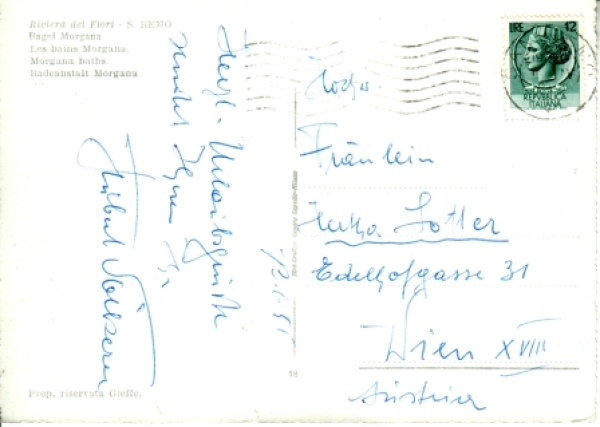 Riviera dei Fiori - S. REMO
Bagni Morgana
Les bains Morgana.
Morgana baths.
Badeanstalt Morgana
Herzl. Urlaubsgrüße
sendet Ihnen Ihr
Hubert
Prop. riservata Gieffe.
18
LIRE 12
REPVBBLICA
ITALIANA
Fräulein
Hertha Lotter
Edelhofgasse 31
Wien XVIII
Austria